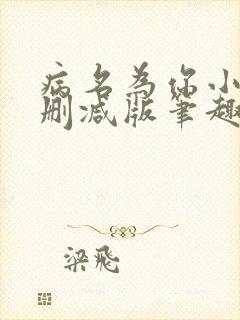 病名为你小
删减版笔趣
梁飛